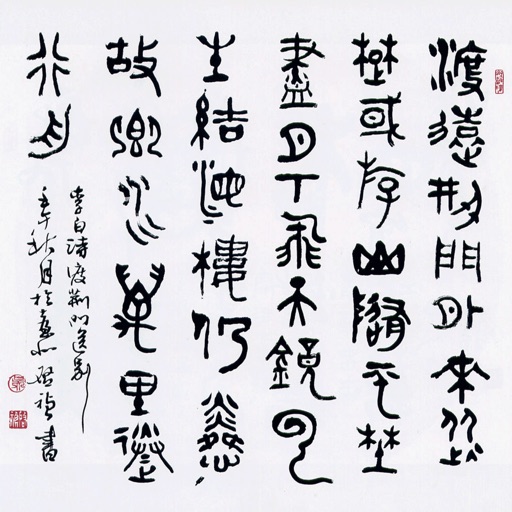 渡遠荊門外來從
楚或斿山隨平埜
盡月下飛天鏡云
生結海樓仍憐
故鄉水萬里送
行舟
李白詩渡荊門送別
壬午秋月於書